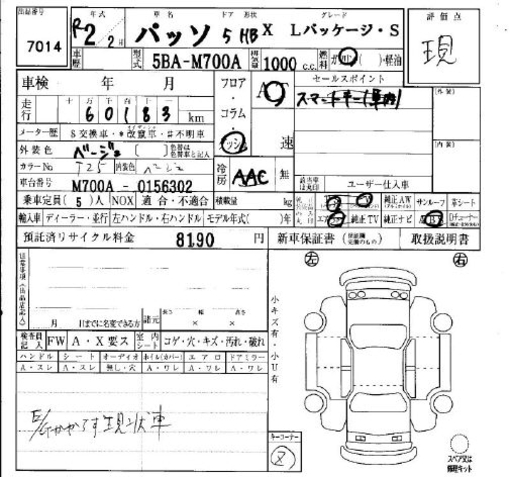 出品番号 年式 車名 ドア 形状 グレード 評価点
7014 R2 2月 パッソ 5 HB X Lパッケージ・S 現
車歴 型式 5BA-M700A 排気量 1000 c.c. 燃料 ・軽油
車検 年 月 フロア・コラム・ AT 速 セールスポイント
走行 十万 万 千 百 十 一
60183 km スマートキー(車内)
メーター歴 S 交換車・*改竄車・#不明車
外装色 ベージュ 色替は色替車と記入
カラーNo T25 内装色 ベージュ 冷房 AAC 無
車台番号 M700A - 0156302 ユーザー仕入車
乗車定員(5)人 NOX 適合・不適合 積載量 kg 純正AW サンルーフ 革シート
輸入車 ディーラー・並行 左ハンドル・右ハンドル モデル年式( )年 純正TV 純正ナビ
預託済リサイクル料金 8190 円 新車保証書 取扱説明書
左 右
月 日までに名変できる方 諸元 長さ 幅 高さ
× ×
検査員記入 FW A・X要ス 室内シート コゲ・穴・キズ・汚れ・破れ
ハンドル シート オーディオ ホイル(カバー) エアロ ドアミラー
A・スレ A・スレ 無し・穴 A・ワレ A・ワレ A・ワレ
小キズ有・小U有
E/Gかからず現状車
キーコーナー
スペア又は修理キット